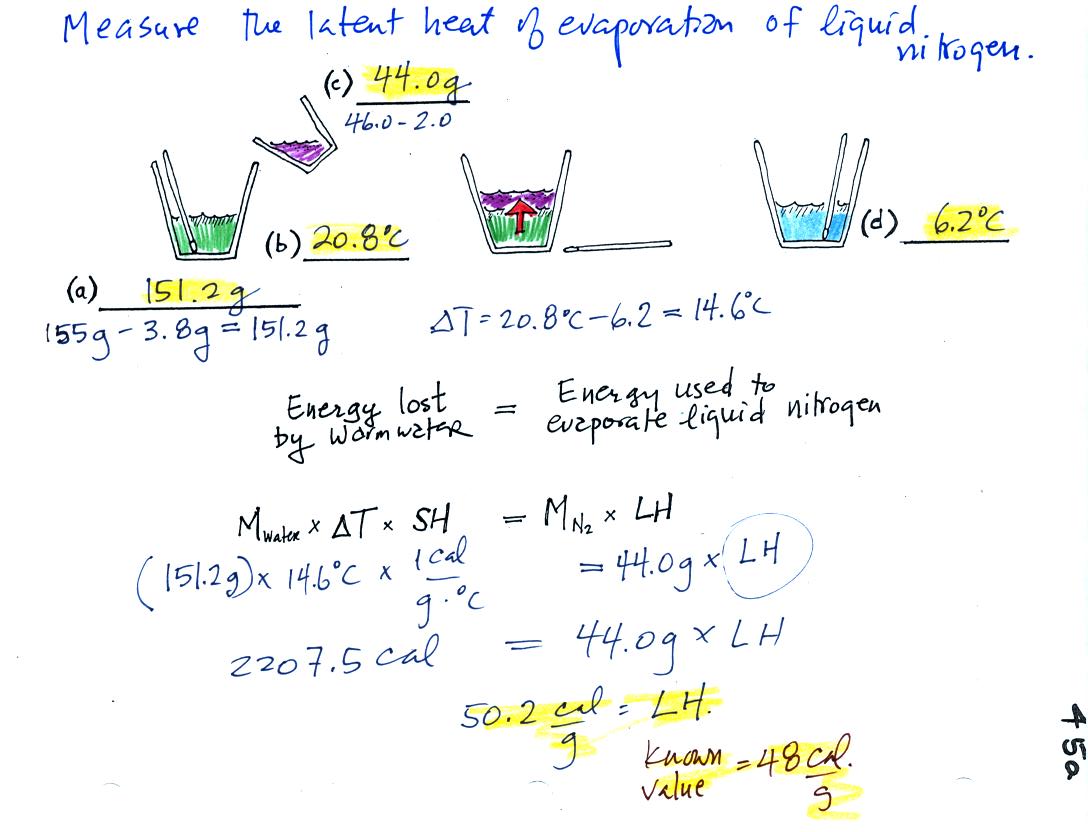 Measure the latent heat of evaporation of liquid nitrogen.
(c) 44.0g
46.0 - 2.0
(b) 20.8°C
(d) 6.2°C
(a) 151.2g
155g - 3.8g = 151.2g
ΔT = 20.8°C - 6.2 = 14.6°C
Energy lost by warm water = Energy used to evaporate liquid nitrogen
M water × ΔT × SH = M N₂ × LH
(151.2g) × 14.6°C × 1 cal / g·°C = 44.0g × LH
2207.5 cal = 44.0g × LH
50.2 cal/g = LH.
known value = 48 cal./g
45a